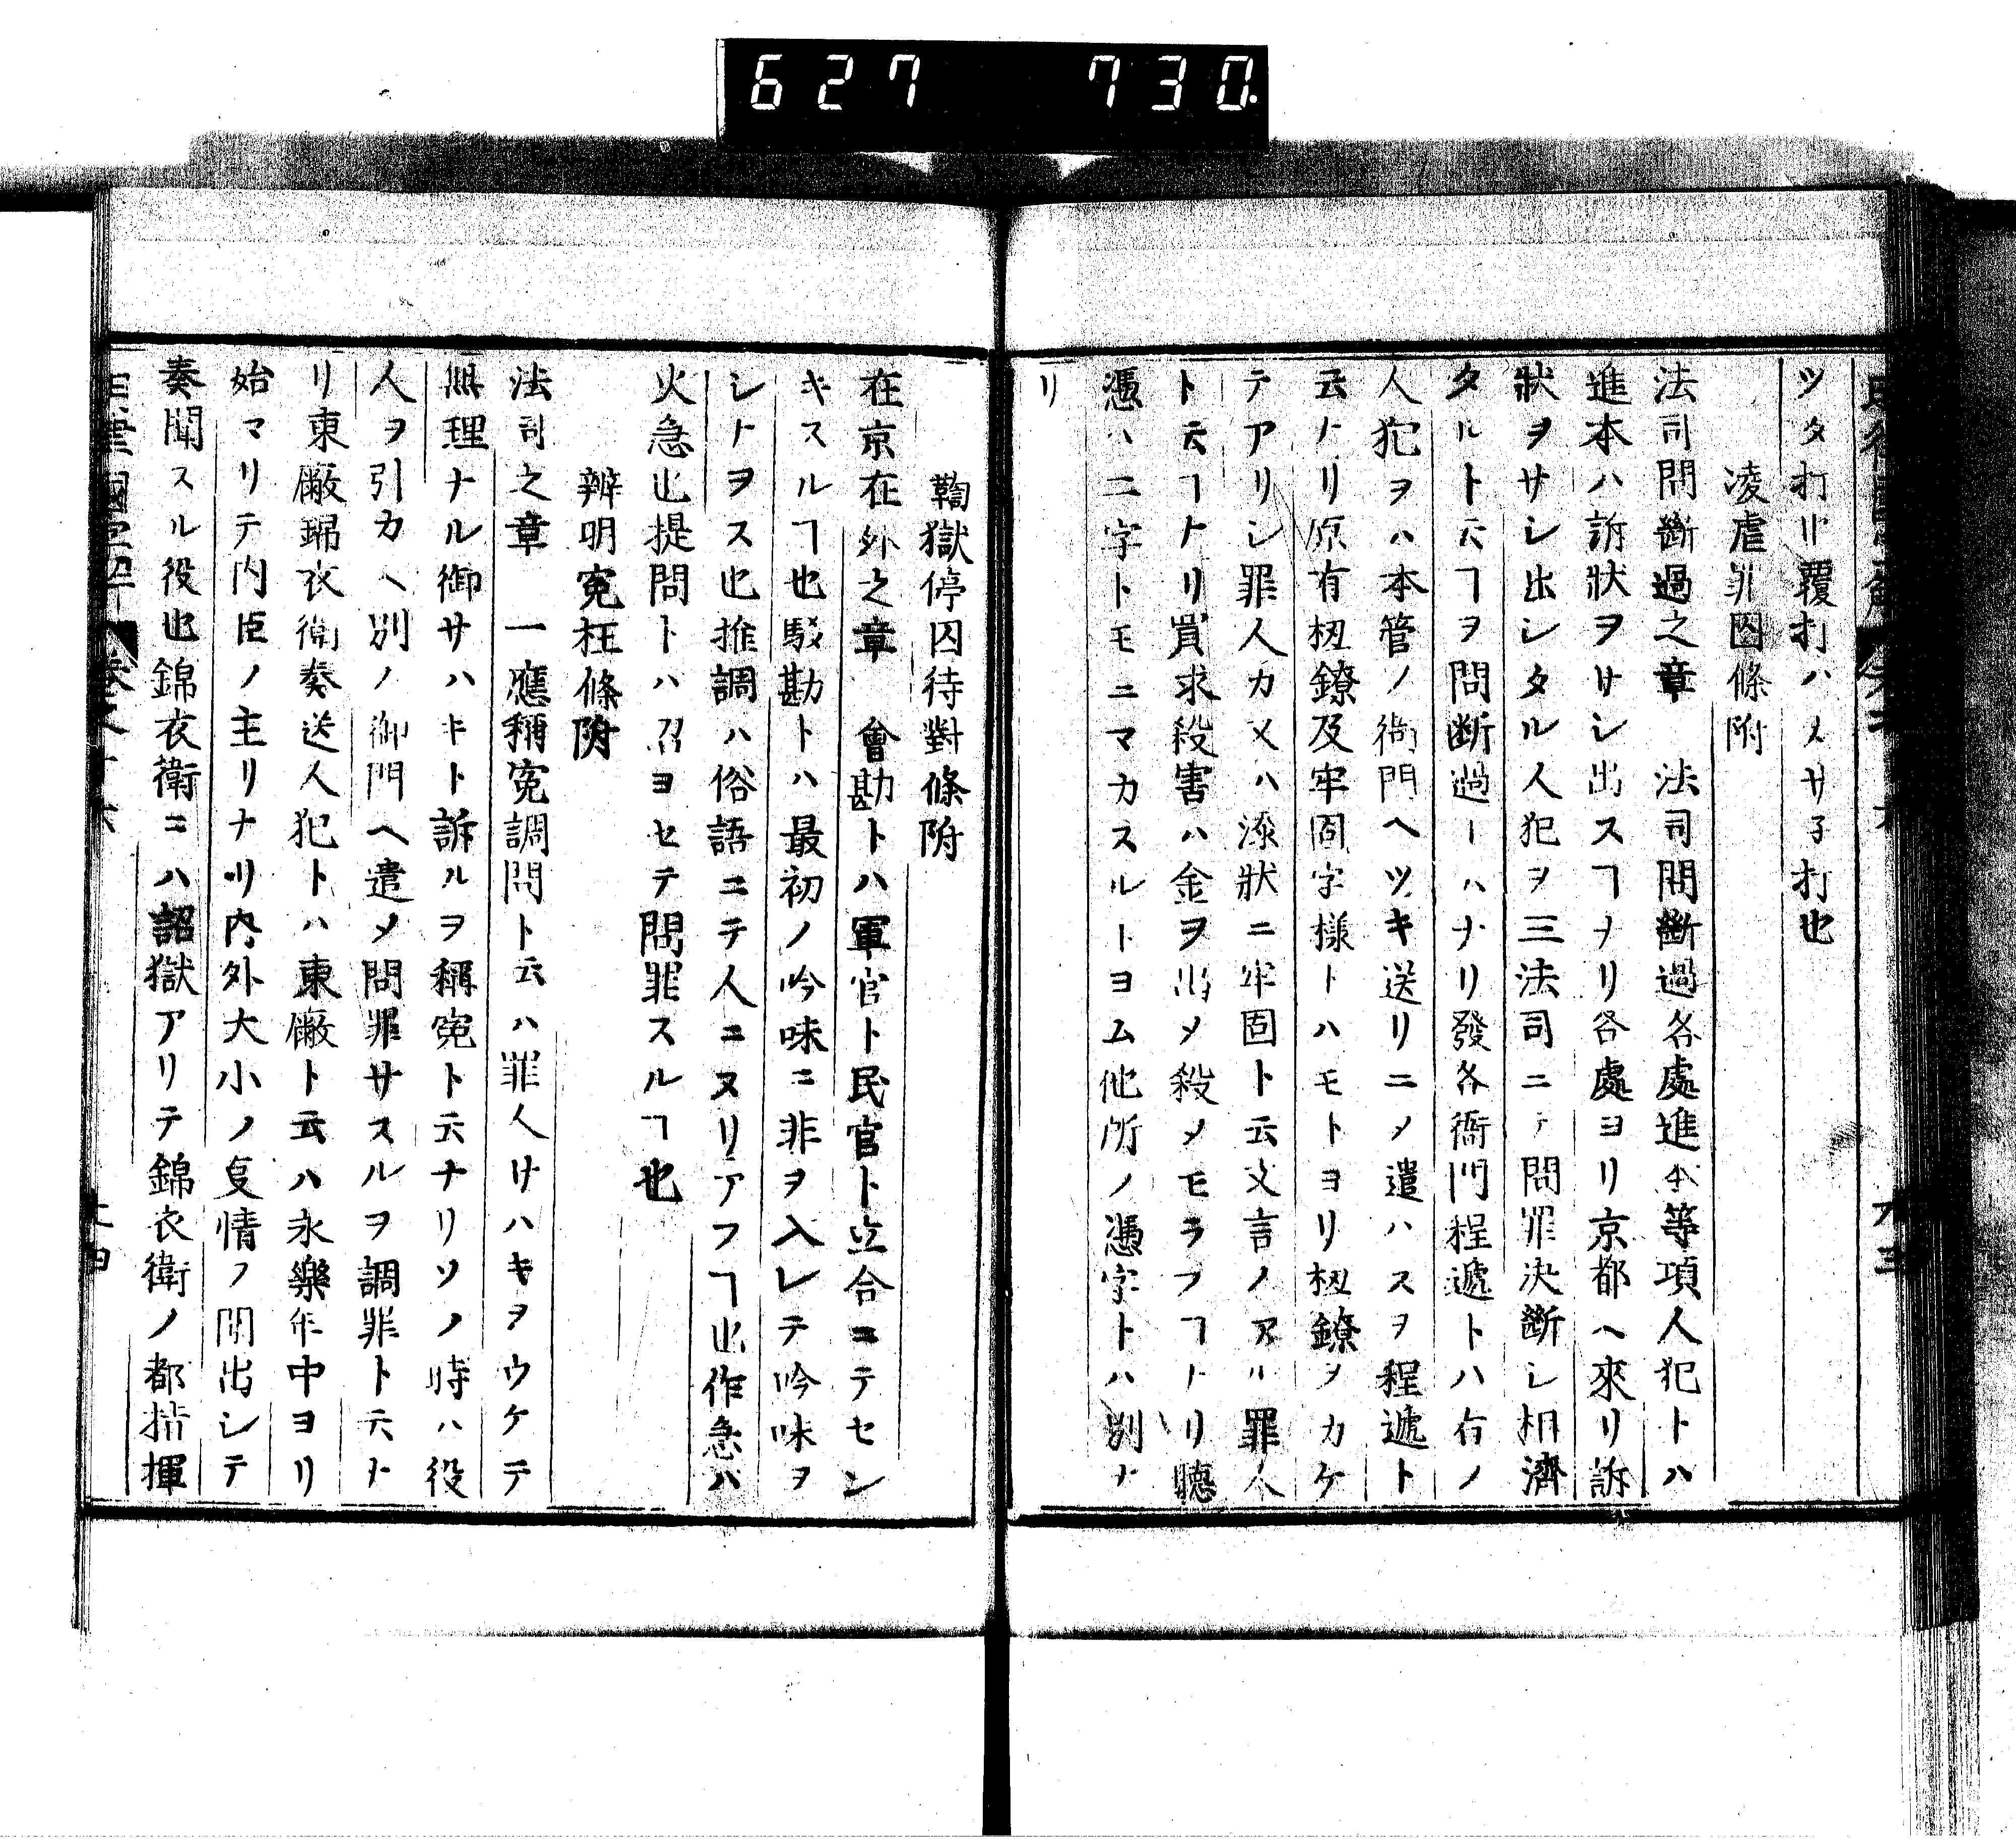 627 730
ツタ打ハ覆打ハメサ子打也
凌虐罪囚條附
法司問斷過之章 法司問斷過各處進本等項人犯トハ
進本ハ訴狀ヲサシ出スヿナリ各處ヨリ京都ヘ來リ訴
狀ヲサシ出シタル人犯ヲ三法司ニテ問罪决斷シ相濟
タルト云ヿヲ問断過トハナリ發各衙門程遞トハ右ノ
人犯ヲハ本管ノ衙門ヘツキ送リニメ遣ハスヲ程遞ト
云ナリ原有杻鐐及牢固字樣トハモトヨリ杻鐐ヲカケ
テアリシ罪人カ又ハ添狀ニ牢牢固ト云文言ノアル罪人
ト云ヿナリ買求殺害ハ金ヲ出メ殺メモラフヿナリ聴
憑ハ二字トモニマカスルトヨム他所ノ憑字トハ別ナ
リ
鞫獄停囚待對條附
在京在外之章 會勘トハ軍官ト民官ト立合ニテセン
キスルヿ也駁勘トハ最初ノ吟味ニ非ヲ入レテ吟味ヲ
シナヲス也推調ハ俗語ニテ人ニヌリアフヿ也作急ハ
火急也提問トハ召ヨセテ問罪スルヿ也
辨明冤枉條附
法司之章 一應稱寃調問ト云ハ罪人サハキヲウケテ
無理ナル御サハキト訴ルヲ稱寃ト云ナリソノ時ハ役
人ヲ引カヘ別ノ御門ヘ遣メ問罪サスルヲ調罪ト云ナ
リ東厰錦衣衛奏送人犯トハ東厰ト云ハ永樂年中ヨリ
始マリテ内臣ノ主リナリ内外大小ノ事情ヲ聞出シテ
奏聞スル役也錦衣衛ニハ詔獄アリテ錦衣衛ノ都指揮